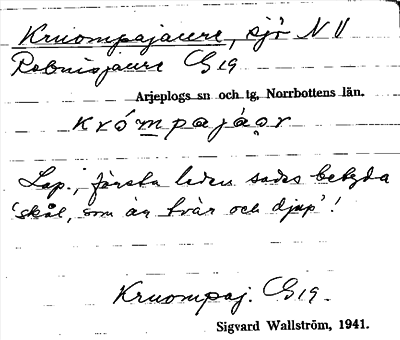 Kruompajaure, sjö N V
Rebnisjaure C19
Arjeplogs sn och tg, Norrbottens län.
krómpajáo̤r
Lap., första leden sades betyda
'skål, som är tvär och djup'!
Kruompaj. C19.
Sigvard Wallström, 1941.